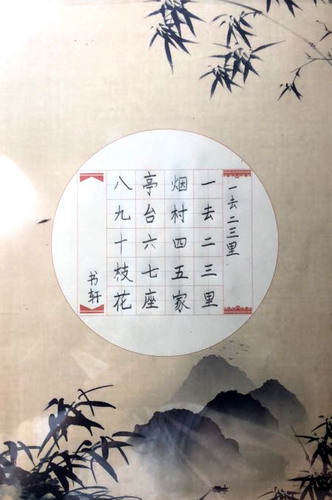 一去二三里
一去二三里
烟村四五家
亭台六七座
八九十枝花
书轩